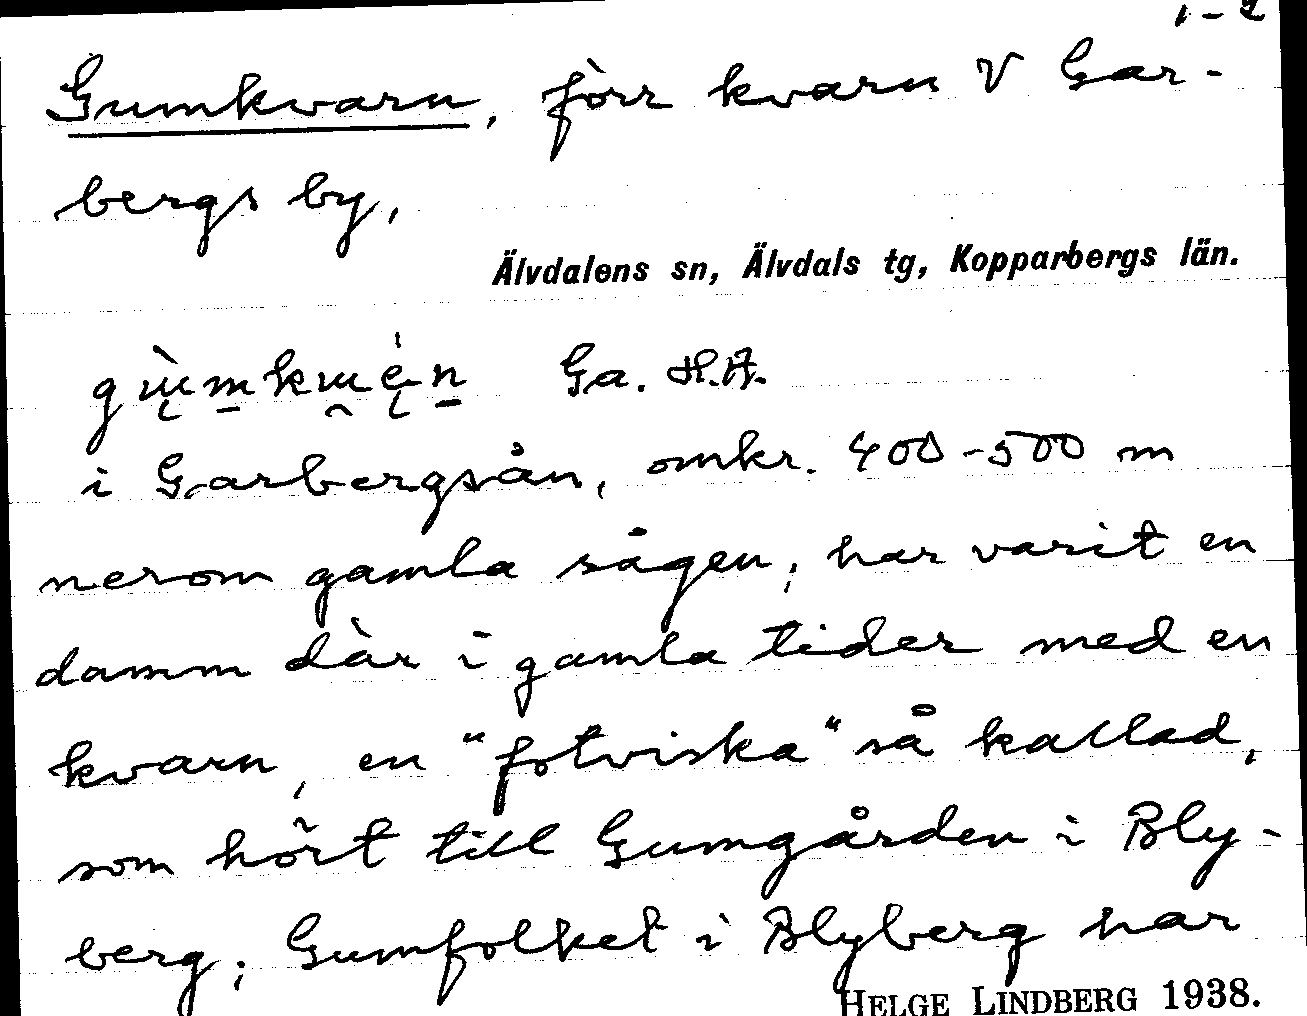 1-2
Gumkvarn, förr kvarn V Gar-
bergs by,
Älvdalens sn, Älvdals tg, Kopparbergs län.
Ga. H.A.
i Garbergsån, omkr. 400-500 m
nerom gamla sågen; har varit en
damm där i gamla tider med en
kvarn, en "fotviska" så kallad,
som hört till Gumgården i Bly-
berg; Gumfolket i Blyberg har
HELGE LINDBERG 1938.